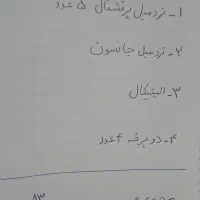 ۱- تردمیل پرفشنال ۵ عدد
۲- تردمیل جانسون
۳- الپتیکال
۴- دوچرخه ۴ عدد
۸۳